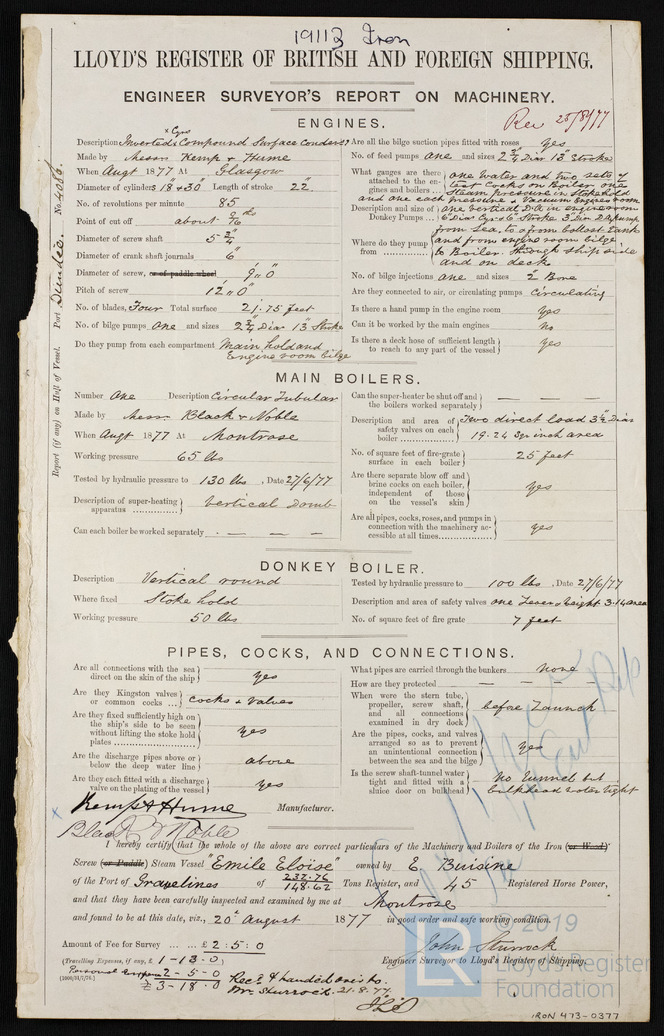 19113 Iron
LLOYD'S REGISTER OF BRITISH AND FOREIGN SHIPPING.
ENGINEER SURVEYOR'S REPORT ON MACHINERY.
Rec 25/8/77
Report (if any) on Hull of Vessel. Port Dundee. No 4086.
ENGINES.
Description Inverted 2 Cyrs Compound Surface Condensg
Made by Messrs Kemp & Hume
When Augt 1877 At Glasgow
Diameter of cylinders 18" & 30" Length of stroke 22"
No. of revolutions per minute 85
Point of cut off about 9/16 ths
Diameter of screw shaft 5 3/4"
Diameter of crank shaft journals 6"
Diameter of screw, or of paddle wheel 9' 0"
Pitch of screw 12' 0"
No. of blades, Four Total surface 21.75 feet
No. of bilge pumps One and sizes 2 3/4 Dia 13" Stroke
Do they pump from each compartment Main hold and
Engine room bilge
Are all the bilge suction pipes fitted with roses Yes
No. of feed pumps One and sizes 2 3/4 Dia 13" Stroke
What gauges are there attached to the engines and boilers one water and two sets of
test Cocks on Boiler one
Steam pressure in stokehold
and one each pressure & Vacuum Engine room
Description and size of Donkey Pumps one Vertical D.A in engine room
6" Dia Cyr & 6" Stroke 3" Dia D.A pump
Where do they pump from from Sea, to & from ballast tank
and from engine room bilge
to Boiler through ship side
and on deck
No. of bilge injections one and sizes 2" Bore
Are they connected to air, or circulating pumps Circulating
Is there a hand pump in the engine room Yes
Can it be worked by the main engines No
Is there a deck hose of sufficient length to reach to any part of the vessel Yes
MAIN BOILERS.
Number One Description Circular Tubular
Made by Messrs Black & Noble
When Augt 1877 At Montrose
Working pressure 65 lbs
Tested by hydraulic pressure to 130 lbs, Date 27/6/77
Description of super-heating apparatus Vertical Domb
Can each boiler be worked separately — — —
Can the super-heater be shut off and the boilers worked separately — — —
Description and area of safety valves on each boiler Two direct load 3 1/2" Dia
19.24 Sqr inch area
No. of square feet of fire-grate surface in each boiler 25 feet
Are there separate blow off and brine cocks on each boiler, independent of those on the vessel's skin yes
Are all pipes, cocks, roses, and pumps in connection with the machinery accessible at all times yes
DONKEY BOILER.
Description Vertical round
Where fixed Stoke hold
Working pressure 50 lbs
Tested by hydraulic pressure to 100 lbs, Date 27/6/77
Description and area of safety valves one Lever & weight 3.14 area
No. of square feet of fire grate 7 feet
PIPES, COCKS, AND CONNECTIONS.
Are all connections with the sea direct on the skin of the ship yes
Are they Kingston valves or common cocks Cocks & Valves
Are they fixed sufficiently high on the ship's side to be seen without lifting the stoke hold plates yes
Are the discharge pipes above or below the deep water line above
Are they each fitted with a discharge valve on the plating of the vessel yes
What pipes are carried through the bunkers none
How are they protected — — —
When were the stern tube, propeller, screw shaft, and all connections examined in dry dock before Launch
Are the pipes, cocks, and valves arranged so as to prevent an unintentional connection between the sea and the bilge yes
Is the screw shaft-tunnel water tight and fitted with a sluice door on bulkhead No Tunnel but
bulkhead water tight
x Kemp & Hume Manufacturer.
Black & Noble
I hereby certify that the whole of the above are correct particulars of the Machinery and Boilers of the Iron (or Wood)
Screw (or Paddle) Steam Vessel "Emile Eloïse" owned by E. Buisine
of the Port of Gravelines of 232.76 / 148.62 Tons Register, and 45 Registered Horse Power,
and that they have been carefully inspected and examined by me at Montrose
and found to be at this date, viz., 20th August 1877 in good order and safe working condition.
John Sturrock
Engineer Surveyor to Lloyd's Register of Shipping.
Amount of Fee for Survey £ 2 : 5 : 0
(Travelling Expenses, if any, £ 1 - 13 - 0)
2 - 5 - 0
£ 3 - 18 . 0
Recd. & handed over to
Mr Sturrock. 21.8.77.
LR © 2019
Lloyd's Register
Foundation
IRON 473-0377